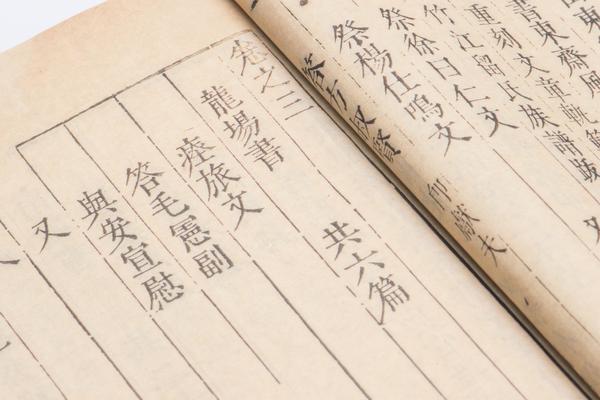 山東
書東齋風
重刻文章軌範
竹江劉氏族譜跋
祭徐曰仁文
祭楊仕鳴文
卷之三
龍場書 共六篇
瘞旅文
答毛憲副
與安宣慰
又